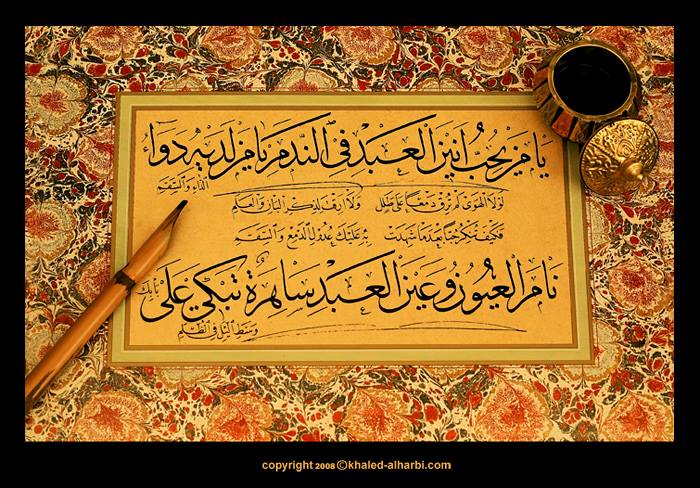 يا من يحب أنين العبد في الندم يا من لديه دواء
الداء والسقم
لولا الهوى لم ترق دمعا على طلل ولا أرقت لذكر البان والعلم
فكيف تنكر حبا بعد ما شهدت به عليك عدول الدمع والسقم
نام العيون وعين العبد ساهرة تبكي على
بابك
وسط الليل في الظلم
copyright 2008 ©khaled-alharbi.com